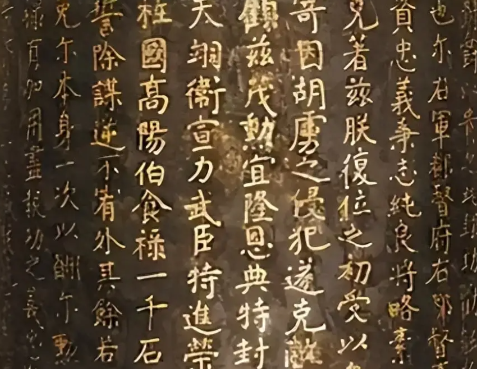 也尔右軍都督府右都督
資忠義秉志純良將略素
克著兹朕復位之初受以
奇因胡虜之侵犯遂克敵
顧兹茂勲宜隆恩典特封
天翊衛宣力武臣特進榮
柱國高陽伯食祿一千石
誓除謀逆不宥外其餘若
免尔本身一次以酬尔勲
祿有加用盡報功之義